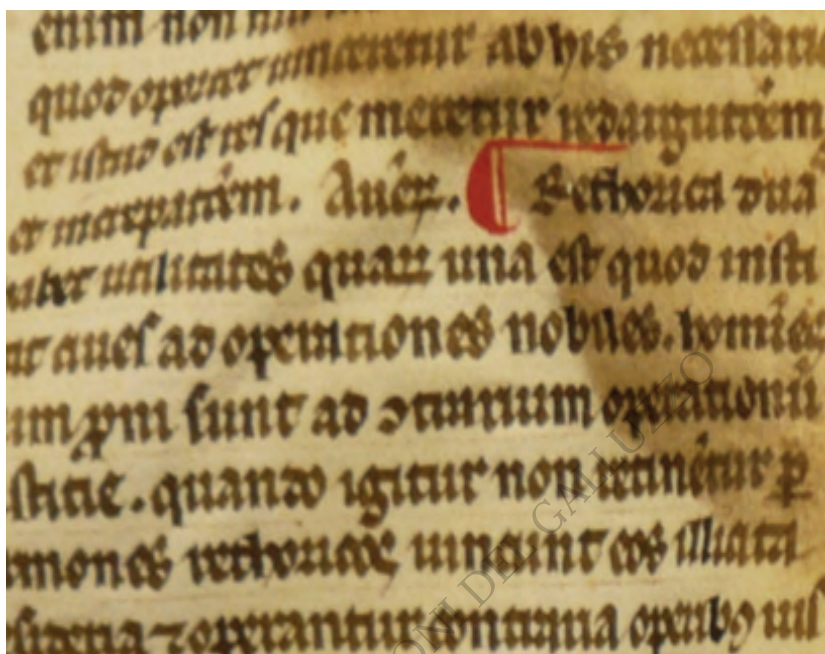 enim non
quod oportet uinceretur ab his neccessari
et istud est res que meretur redargutiōem
et increpatiōem. Auer̄. ¶ Rethorica dua
utilitates quaꝝ una est quod insti
ciues ad operationes nobiles. homīes
um ꝓni sunt ad ↄtrarium operationū
stitie. quando igitur non retinētur ꝑ
mones rethoricos uincunt eos illicita
sideria ⁊ operantur contraria operibꝰ
ONI DEL GALLUZZO